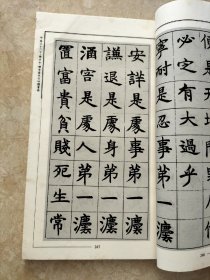 必定有大過乎
寧耐是忍事第一灋
安詳是處事第一灋
謙退是處身第一灋
涵容是處人第一灋
置富貴貧賤死生常
247